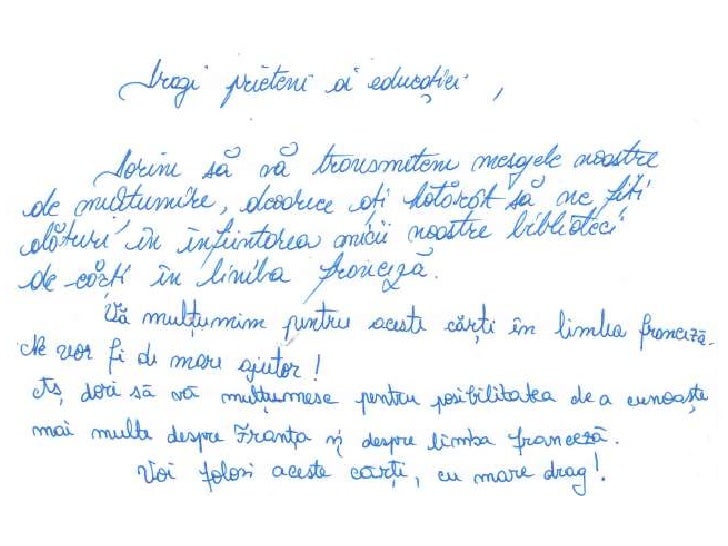 Dragi prieteni ai educației,
Dorim să vă transmitem mesajele noastre
de mulțumire, deoarece ați hotărât să ne fiți
alături în înființarea micii noastre biblioteci
de cărți în limba franceză.
Vă mulțumim pentru aceste cărți în limba franceză.
Ne vor fi de mare ajutor!
Aș dori să vă mulțumesc pentru posibilitatea de a cunoaște
mai multe despre Franța și despre limba franceză.
Voi folosi aceste cărți, cu mare drag!